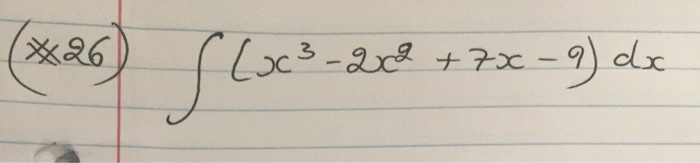 (xx26) ∫(x³ - 2x² + 7x - 9) dx